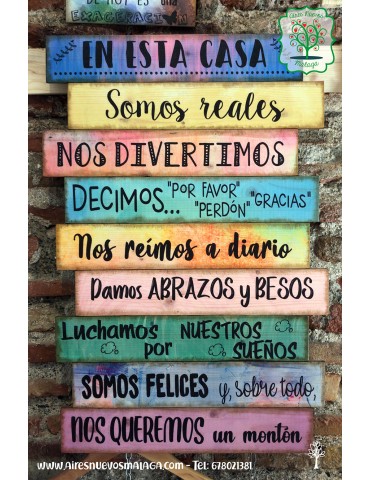 DE HOY ES UNA
EXAGERACIÓN
EN ESTA CASA
Somos reales
NOS DIVERTIMOS
DECIMOS... "POR FAVOR" "PERDÓN" "GRACIAS"
Nos reímos a diario
Damos ABRAZOS y BESOS
Luchamos por NUESTROS SUEÑOS
SOMOS FELICES y, sobre todo,
NOS QUEREMOS un montón
www.airesnuevosmalaga.com - Tel: 678021381
Aires Nuevos
Málaga